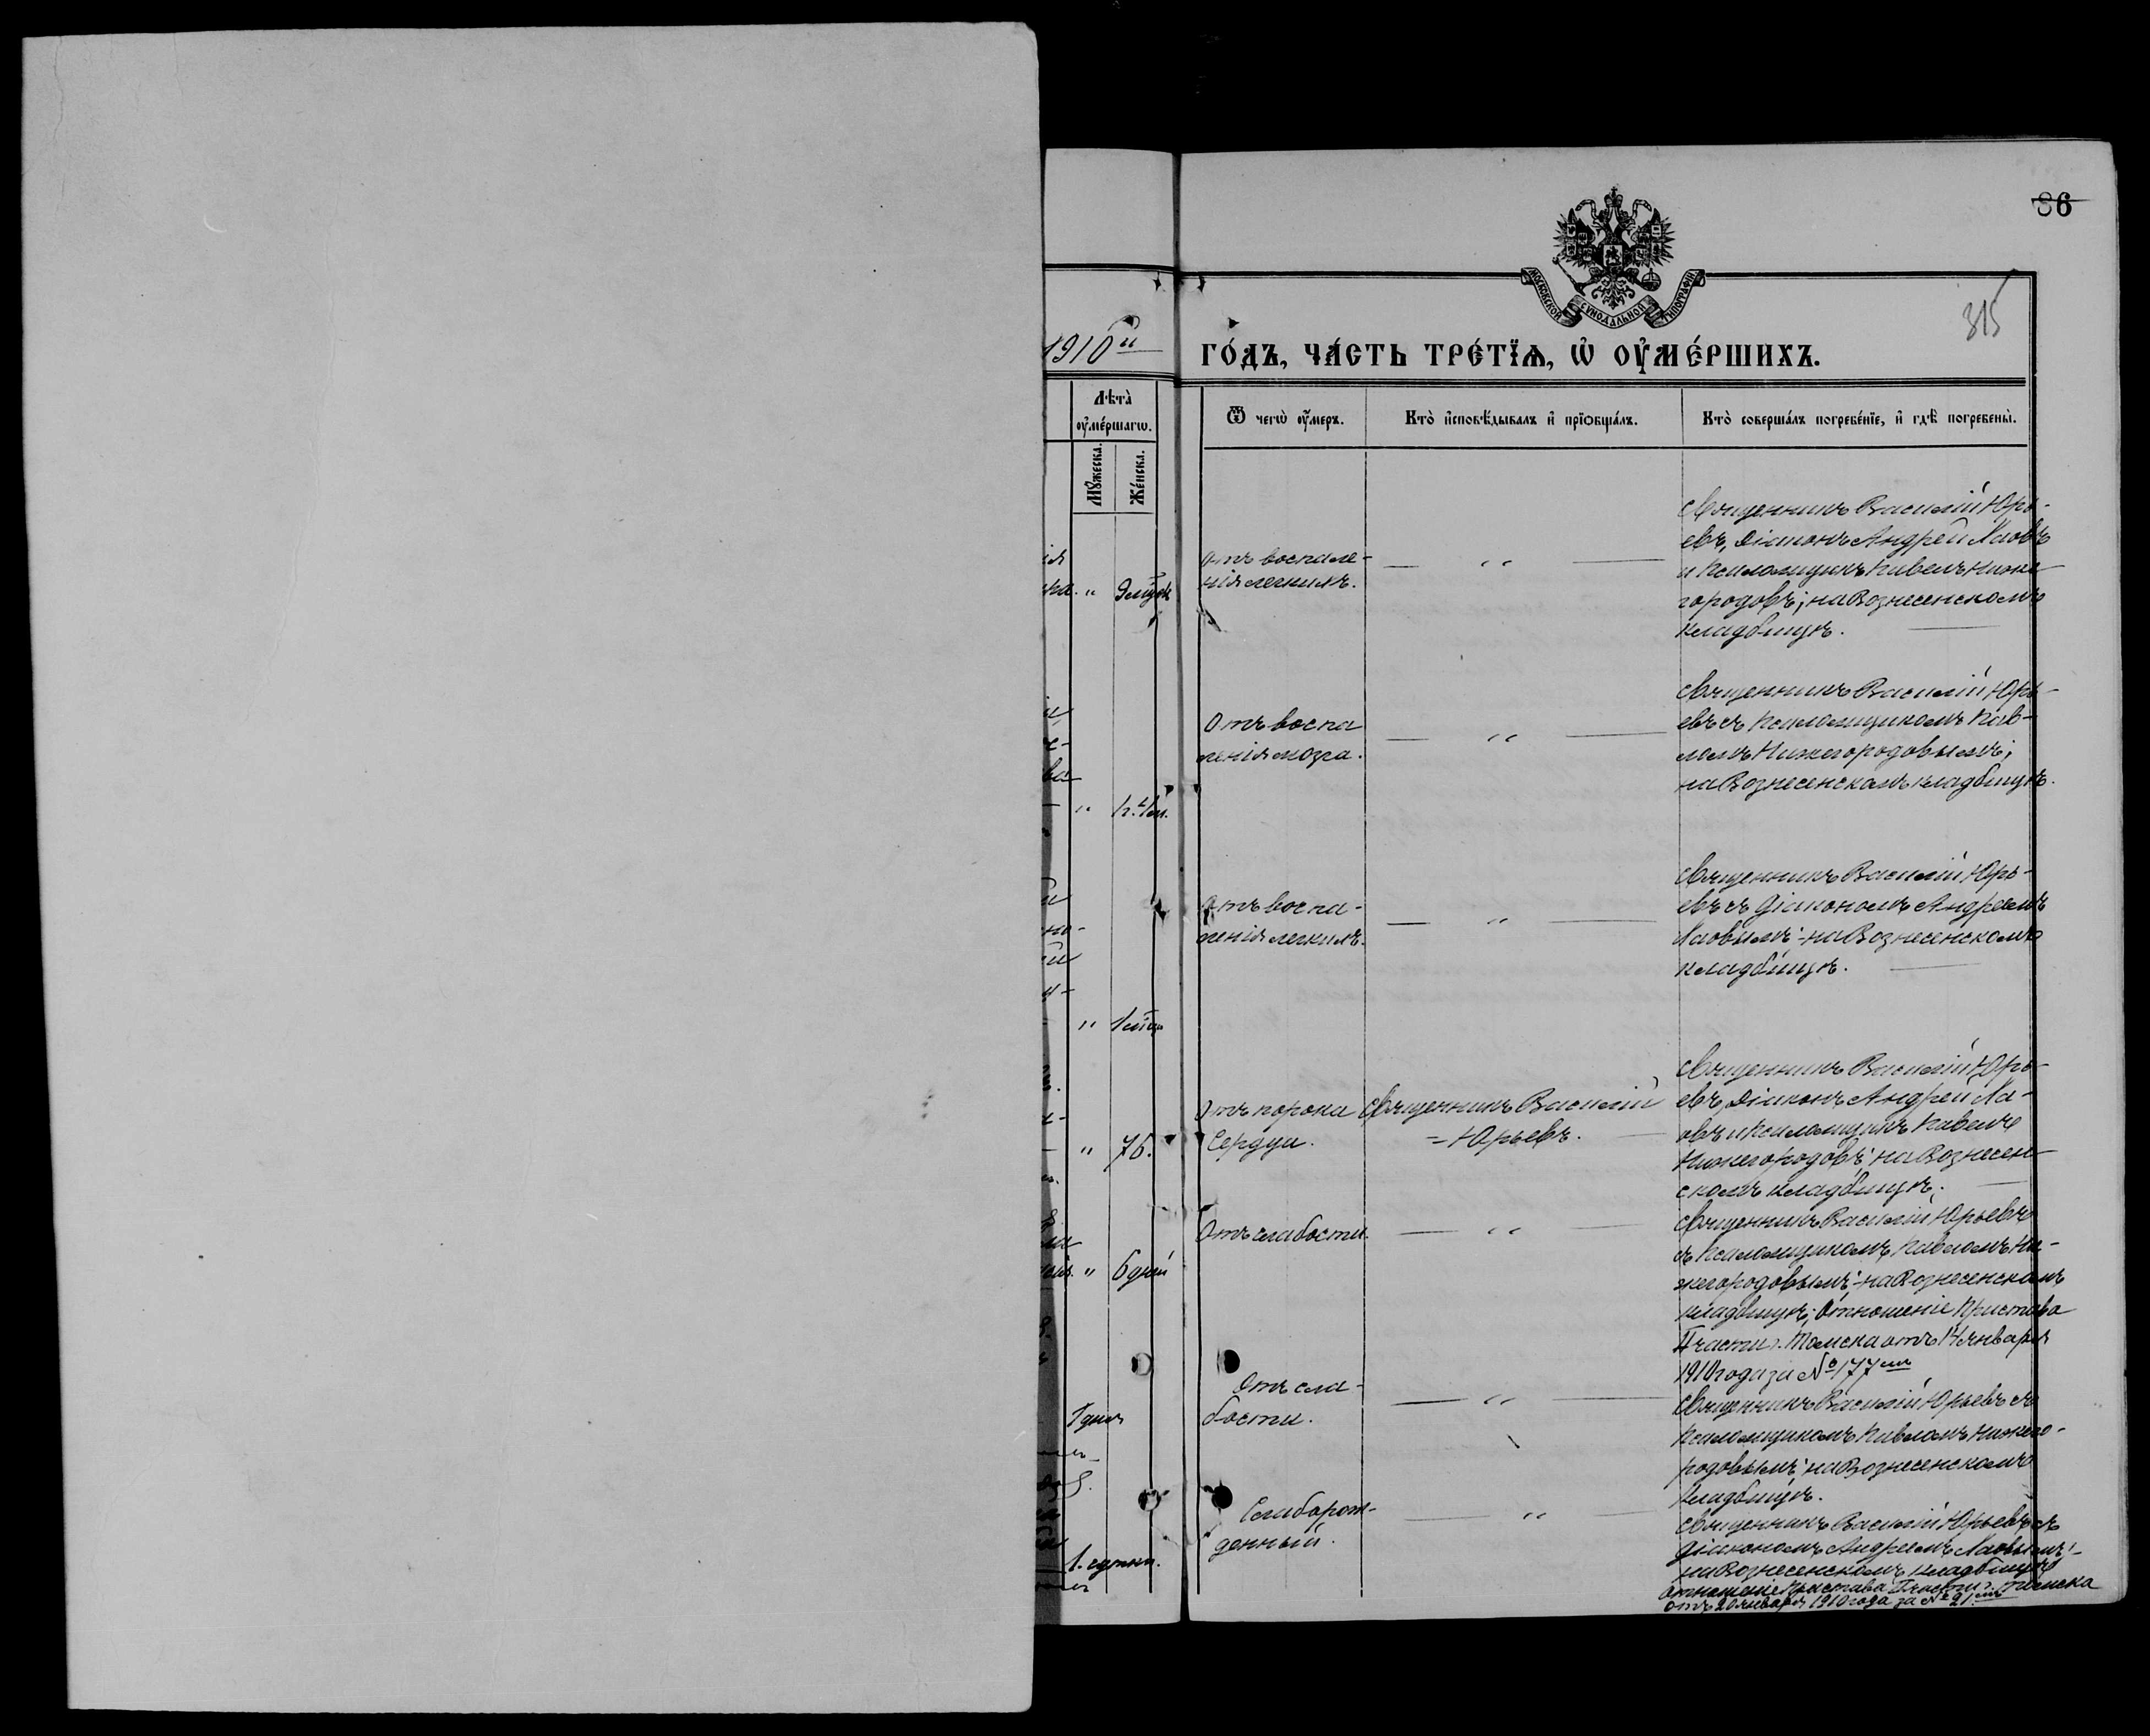 86
315
МОСКОВСКОЙ СѴНОДАЛЬНОЙ ТИПОГРАФІИ
1910й
го́дъ, ча́сть тре́тїѧ, ѡ҆ оу҆ме́ршихъ.
Лѣта̀
оу҆ме́ршагѡ.
Мꙋ́жеска.
Же́нска.
Ѿ чегѡ̀ оу҆́меръ.
Кто̀ и҆сповѣ́дывалъ и҆ прїѡбща́лъ.
Кто̀ соверша́лъ погребе́нїе, и҆ гдѣ̀ погребены̀.
"
отъ воспале-
нія легкихъ.
— " —
Священникъ Василій Юрь-
евъ, Діаконъ Андрей Лаовъ
и псаломщикъ Павелъ Ниже-
городовъ; на Вознесенскомъ
кладбищѣ.
"
Отъ воспа
ленія мозга.
— " —
Священникъ Василій Юрь-
евъ съ псаломщикомъ Пав-
ломъ Нижегородовымъ;
на Вознесенскомъ кладбищѣ.
"
Отъ воспа-
ленія легкихъ.
— " —
Священникъ Василій Юрь-
евъ съ діакономъ Андреемъ
Лаовымъ;-на Вознесенскомъ
кладбищѣ.
" 76.
Отъ порока
Сердца.
Священникъ Василій
=Юрьевъ.
Священникъ Василій Юрь-
евъ, Діаконъ Андрей Ла-
овъ и псаломщикъ Павелъ
Нижегородовъ; на Вознесен-
скомъ кладбищѣ.
" 6 дней
Отъ слабости.
— " —
Священникъ Василій Юрьевъ
съ псаломщикомъ Павломъ Ни-
жегородовымъ;-на Вознесенскомъ
кладбищѣ; Отношеніе Пристава
части г. Томска отъ 14 января
1910 года за № 177мъ
1 дня
Отъ сла-
бости.
— " —
Священникъ Василій Юрьевъ съ
псаломщикомъ Павломъ Нижего-
родовымъ; на Вознесенскомъ
кладбищѣ.
1. сутки.
Слаборож-
денный.
— " —
Священникъ Василій Юрьевъ съ
діакономъ Андреемъ Лаовымъ;-
на Вознесенскомъ кладбищѣ
отношеніе Пристава части г. Томска
отъ 20 января 1910 года за № 21мъ